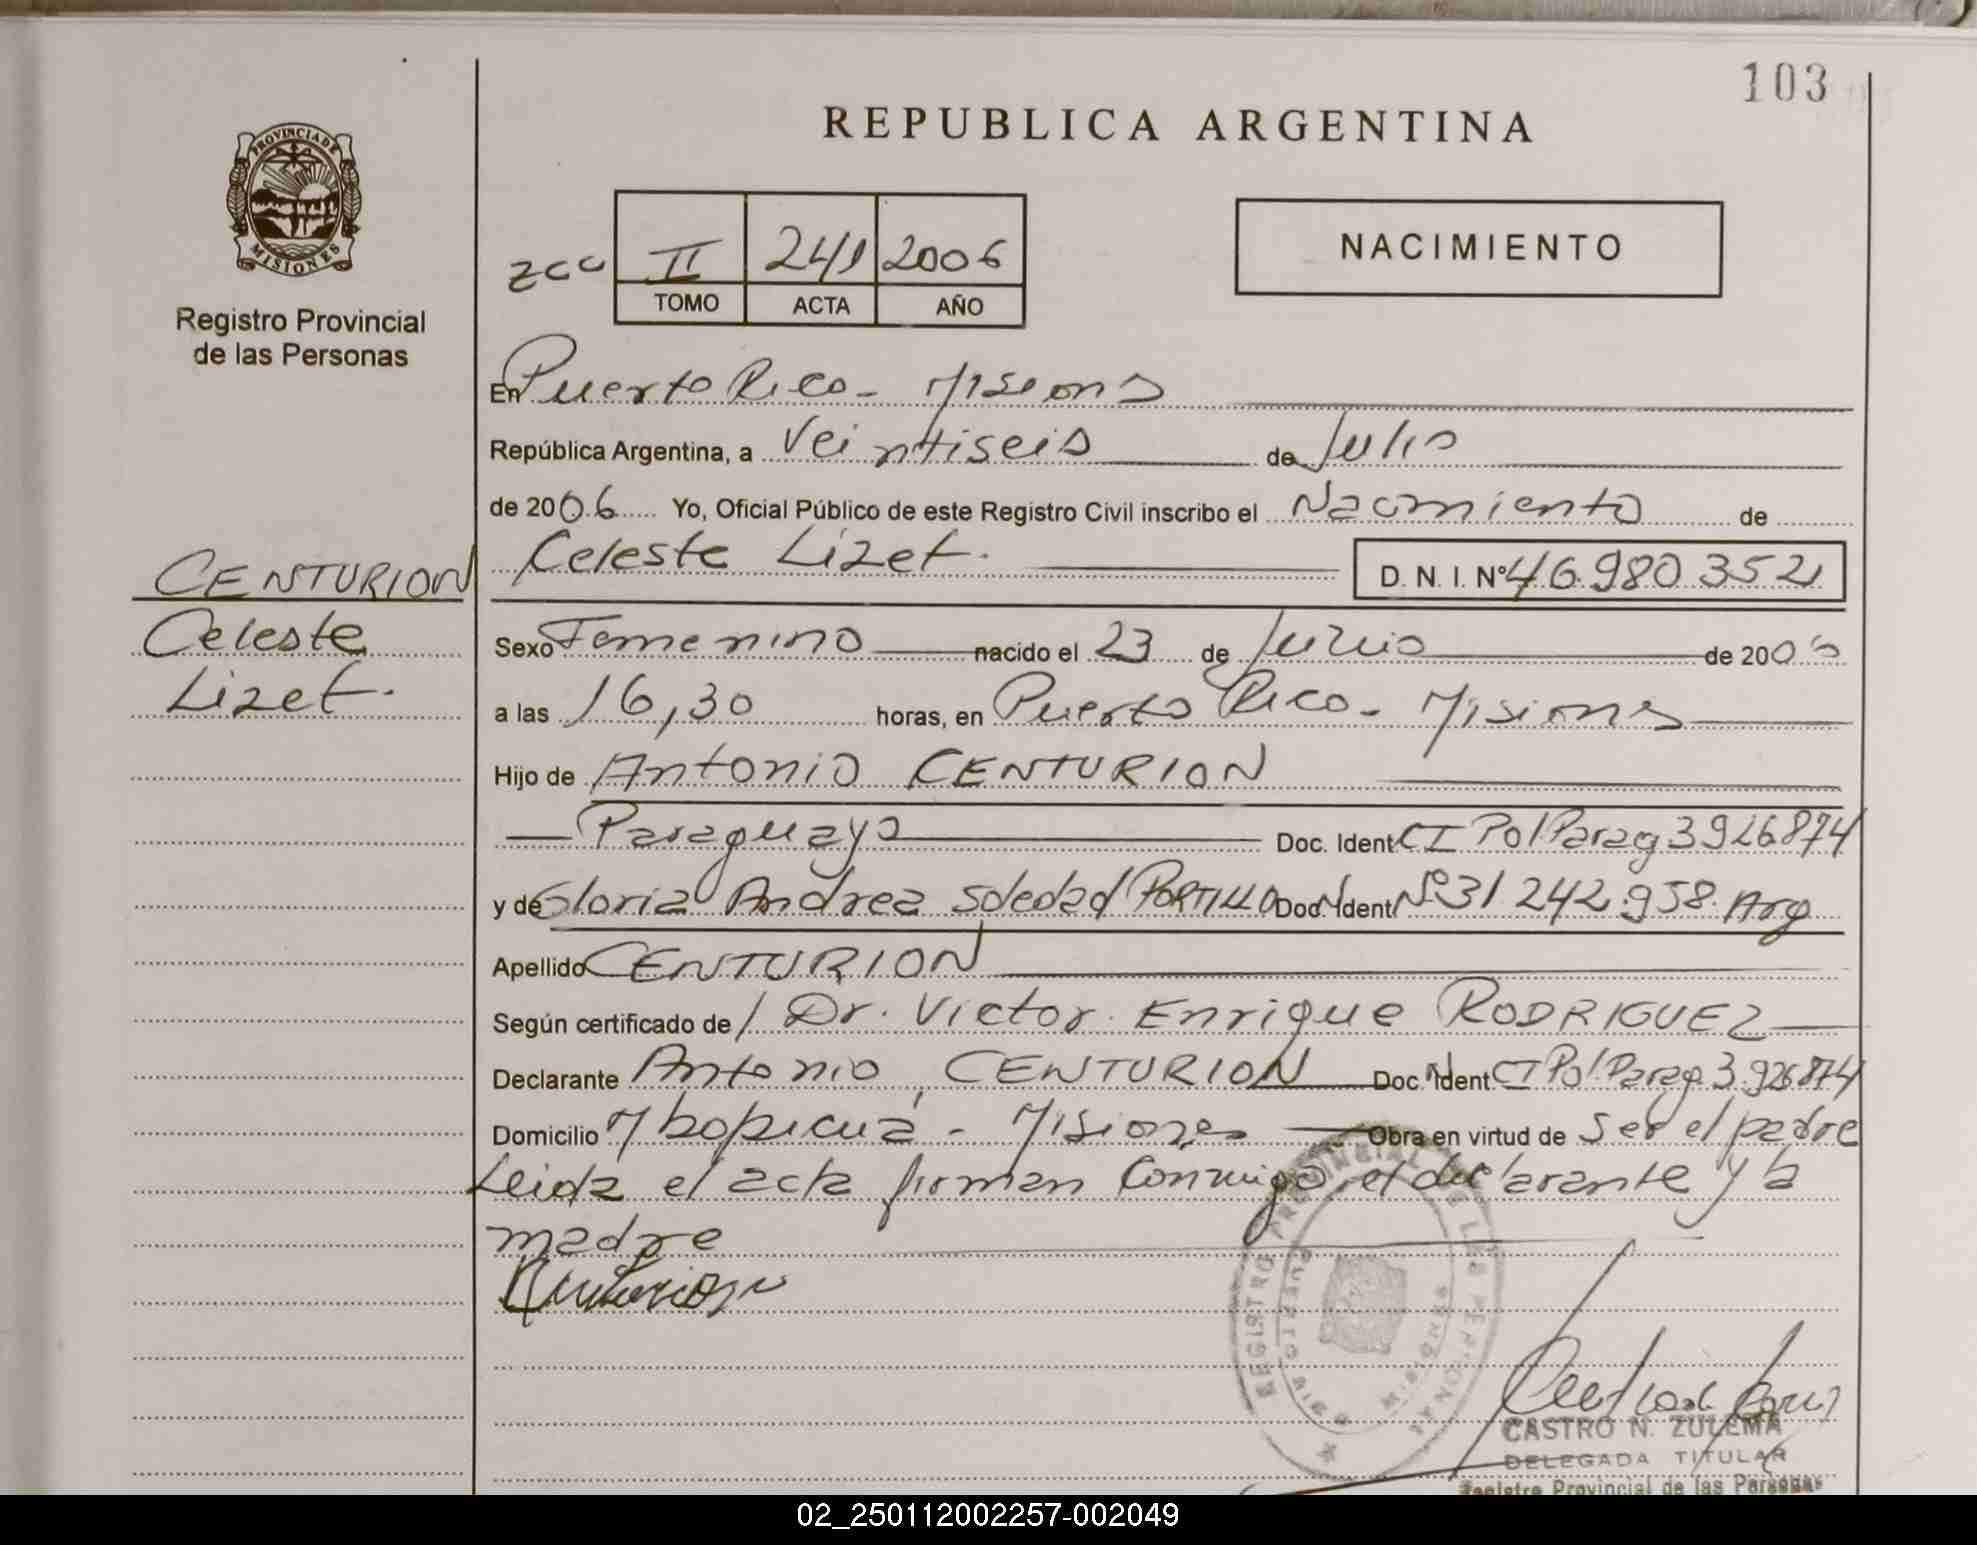 103
REPUBLICA ARGENTINA
PROVINCIA DE MISIONES
Registro Provincial
de las Personas
zcc II 241 2006
TOMO ACTA AÑO
NACIMIENTO
En Puerto Rico - Misiones
República Argentina, a Veintiseis de Julio
de 2006 Yo, Oficial Público de este Registro Civil inscribo el Nacimiento de
Celeste Lizet. D. N. I. Nº 46.980.352
CENTURION
Celeste
Lizet.
Sexo Femenino nacido el 23 de Junio de 2006
a las 16,30 horas, en Puerto Rico - Misiones
Hijo de Antonio CENTURION
Paraguayo Doc. Ident CI Pol Parag 3926874
y de Gloria Andrea Soledad PORTILLO Doc. Ident Nº 31.242.958. Arg
Apellido CENTURION
Según certificado de / Dr. Victor Enrique RODRIGUEZ
Declarante Antonio CENTURION Doc. Ident CI Pol Parag 3.926874
Domicilio Mbopicuá - Misiones Obra en virtud de Ser el padre
Leida el acta firman conmigo, el declarante y la
madre
REGISTRO PROVINCIAL DE LAS PERSONAS
PUERTO RICO
MISIONES
CASTRO N. ZULEMA
DELEGADA TITULAR
Registro Provincial de las Personas
02_250112002257-002049